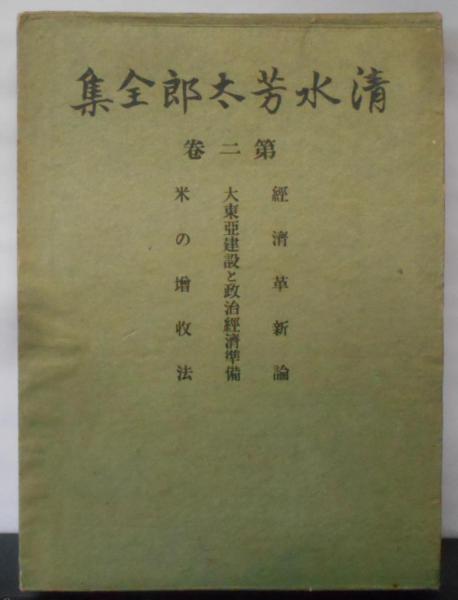 清水芳太郎全集
第二卷
經濟革新論
大東亞建設と政治經濟準備
米の增收法